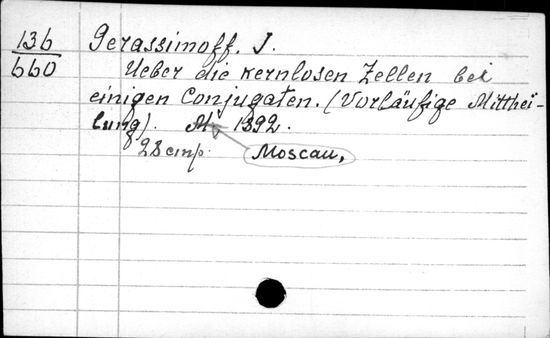 136
660
Gerassimoff. J.
Ueber die kernlosen Zellen bei
einigen Conjugaten. (Vorläufige Mitthei-
lung). M. 1892.
28 cmp. Moscau,